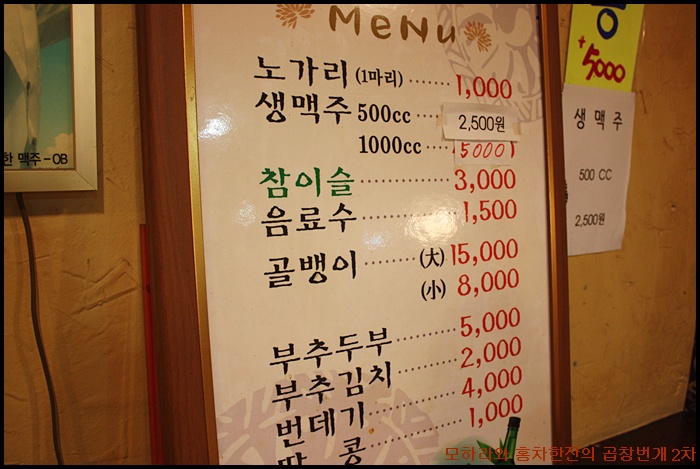 MeNu
노가리 (1마리) ······ 1,000
생맥주 500cc ··· 2,500원
1000cc ··· 5000
참이슬 ············ 3,000
음료수 ············ 1,500
골뱅이 ······ (大) 15,000
(小) 8,000
부추두부 ········ 5,000
부추김치 ········ 2,000
번데기 ·········· 4,000
땅 콩 ·········· 1,000
한 맥주-OB
+5000
생 맥 주
500 CC
2,500원
모하라와 홍차한잔의 곱창번개 2차